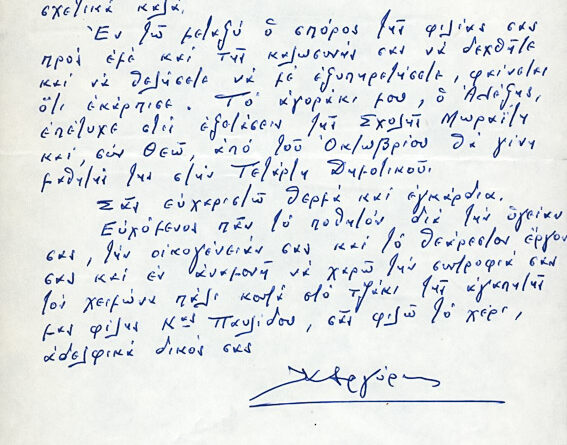 σχετικά καλά.
Ἐν τῷ μεταξύ ὁ σπόρος τῆς φιλίας σας
πρός ἐμέ καί τῆς καλωσύνης σας νά δεχθῆτε
καί νά θελήσετε νά μέ ἐξυπηρετήσετε, φαίνεται
ὅτι ἐκάρπισε. Τό ἀγοράκι μου, ὁ Ἀλέξης,
ἐπέτυχε στίς ἐξετάσεις τῆς Σχολῆς Μωραΐτη
καί, σύν Θεῷ, ἀπό τοῦ Ὀκτωβρίου θά γίνη
μαθητής της στήν Τετάρτη Δημοτικοῦ.
Σᾶς εὐχαριστῶ θερμά καί ἐγκάρδια.
Εὐχόμενος πᾶν τό ποθητόν διά τήν ὑγείαν
σας, τήν οἰκογένειάν σας καί τό θεάρεστον ἔργον
σας καί ἐν ἀναμονῇ νά χαρῶ τήν συντροφιά σας
τόν χειμῶνα πάλι κοντά στό τζάκι τῆς ἀγαπητῆς
μας φίλης Κας Παυλίδου, σᾶς φιλῶ τό χέρι,
ἀδελφικά δικός σας